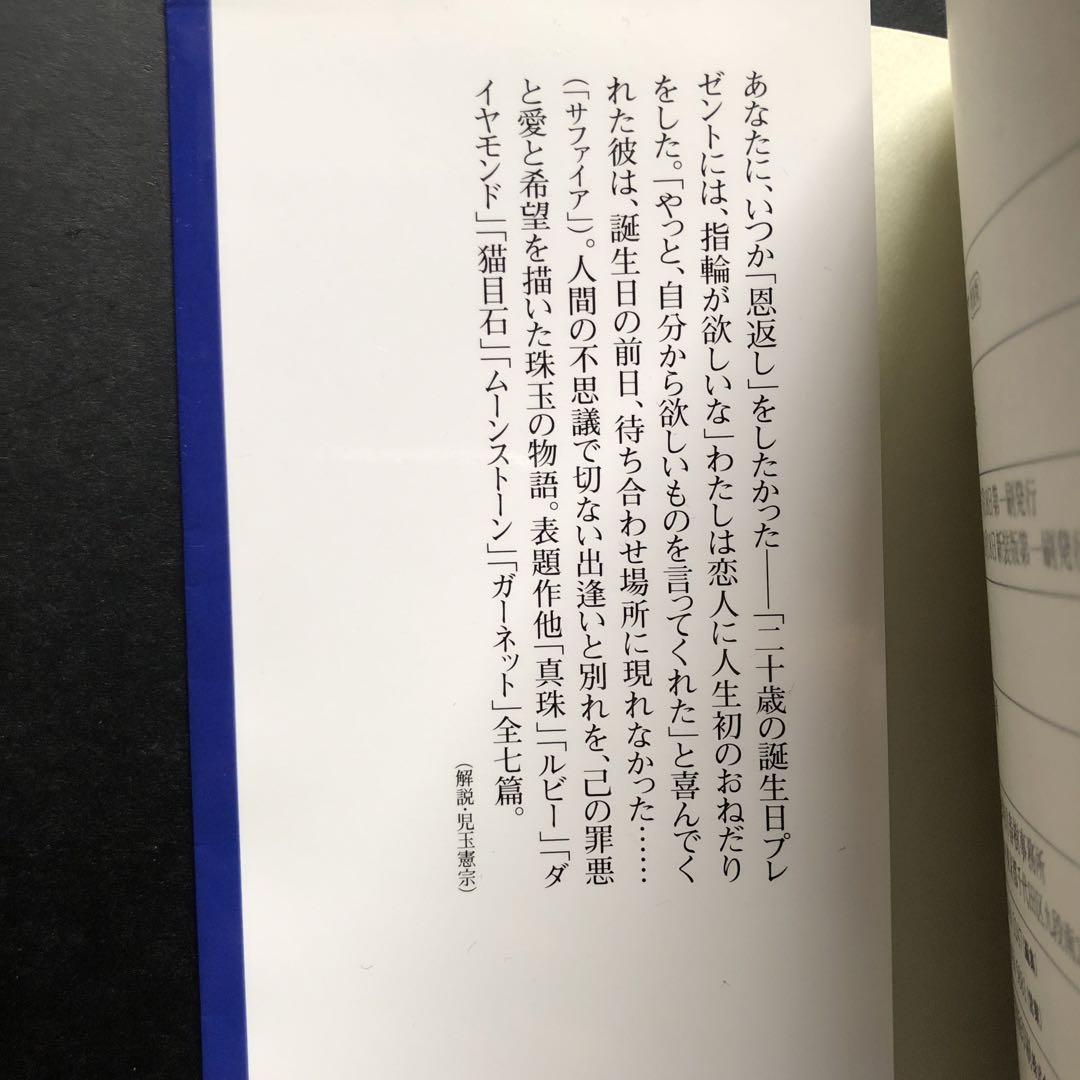 あなたに、いつか「恩返し」をしたかった――「二十歳の誕生日プレ
ゼントには、指輪が欲しいな」わたしは恋人に人生初のおねだり
をした。「やっと、自分から欲しいものを言ってくれた」と喜んでく
れた彼は、誕生日の前日、待ち合わせ場所に現れなかった……
（「サファイア」）。人間の不思議で切ない出逢いと別れを、己の罪悪
と愛と希望を描いた珠玉の物語。表題作他「真珠」「ルビー」「ダ
イヤモンド」「猫目石」「ムーンストーン」「ガーネット」全七篇。
（解説・児玉憲宗）
第一刷発行
新装版第一刷発行
事務所